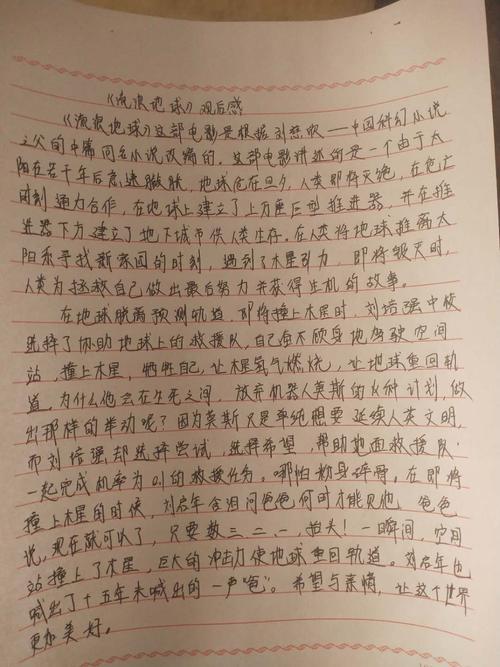 《流浪地球》观后感
《流浪地球》这部电影是根据刘慈欣——中国科幻小说
之父的中篇同名小说改编的。这部电影讲述的是一个由于太
阳在若干年后急速膨胀,地球危在旦夕,人类即将灭绝,在危亡
时刻通力合作,在地球上建立了上万座巨型推进器,并在推
进器下方建立了地下城市供人类生存。在人类将地球推离太
阳系寻找新家园的时刻,遇到了木星引力,即将毁灭时,
人类为拯救自己做出最后努力并获得生机的故事。
在地球脱离预测轨道,即将撞上木星时,刘培强中校
选择了协助地球上的救援队,自己奋不顾身地驾驶空间
站,撞上木星,牺牲自己,让木星氢气燃烧,让地球重回轨
道。为什么他会在生死之间,放弃机器人莫斯的火种计划,做
出那样的举动呢?因为莫斯只是单纯想要延续人类文明,
而刘培强却选择尝试,选择希望,帮助地面救援队
一起完成机率为0的救援任务。哪怕粉身碎骨。在即将
撞上木星的时候,刘启年含泪问爸爸何时才能见他,爸爸
说,现在就可以了,只要数三、二、一,抬头!一瞬间,空间
站撞上了木星,巨大的冲击力使地球重回轨道。刘启年也
喊出了十五年未喊出的一声“爸”。希望与亲情,让这个世界
更加美好。